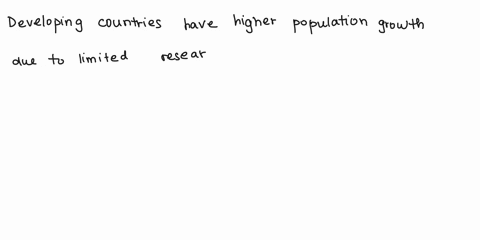 Developing countries have higher population growth
due to limited resear